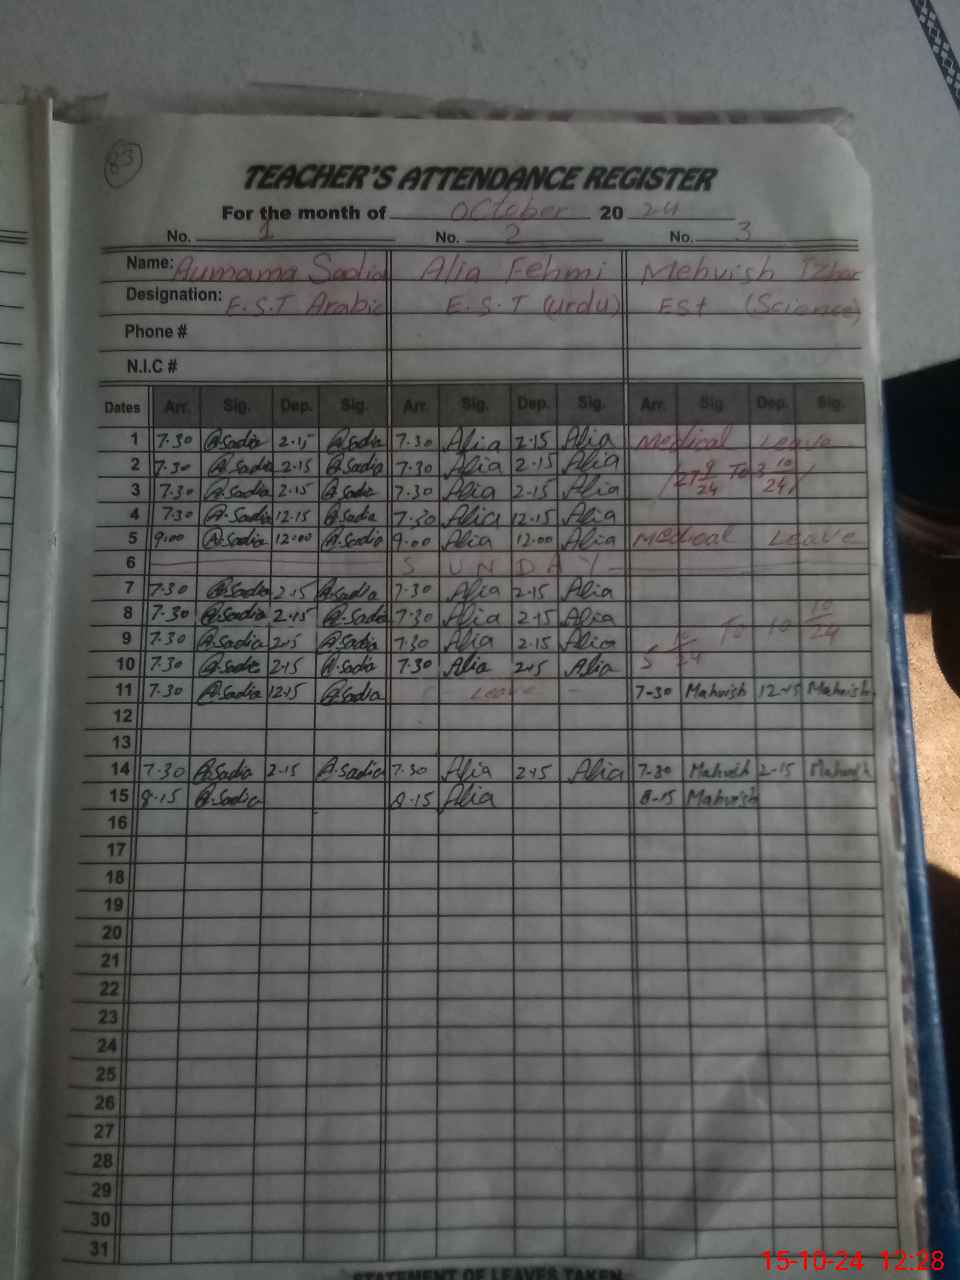 83
TEACHER'S ATTENDANCE REGISTER
For the month of October 20 24
No. 1 No. 2 No. 3
Name: Aumama Sadia Alia Fehmi Mehvish Izhar
Designation: E.S.T Arabic E.S.T (urdu) EST (Science)
Phone #
N.I.C #
Dates Arr. Sig. Dep. Sig. Arr. Sig. Dep. Sig. Arr. Sig Dep. Sig.
1 7.30 A.Sadia 2.15 A.Sadia 7.30 Alia 2.15 Alia Medical Leave
2 7.30 A.Sadia 2.15 A.Sadia 7.30 Alia 2.15 Alia
3 7.30 A.Sadia 2.15 A.Sadia 7.30 Alia 2.15 Alia 27 9/24 To 3 10/24
4 7.30 A.Sadia 12.15 A.Sadia 7.30 Alia 12.15 Alia
5 9.00 A.Sadia 12.00 A.Sadia 9.00 Alia 12.00 Alia Medical Leave
6 SUNDAY
7 7.30 A.Sadia 2.15 A.Sadia 7.30 Alia 2.15 Alia
8 7.30 A.Sadia 2.15 A.Sadia 7.30 Alia 2.15 Alia
9 7.30 A.Sadia 2.15 A.Sadia 7.30 Alia 2.15 Alia 5 10/24 To 10 10/24
10 7.30 A.Sadia 2.15 A.Sadia 7.30 Alia 2.15 Alia
11 7.30 A.Sadia 12.15 A.Sadia Leave 7-30 Mahvish 12-15 Mahvish
12
13
14 7.30 A.Sadia 2.15 A.Sadia 7.30 Alia 2.15 Alia 7-30 Mahvish 2-15 Mahvish
15 8.15 A.Sadia 8.15 Alia 8-15 Mahvish
16
17
18
19
20
21
22
23
24
25
26
27
28
29
30
31
STATEMENT OF LEAVES TAKEN
15-10-24 12:28